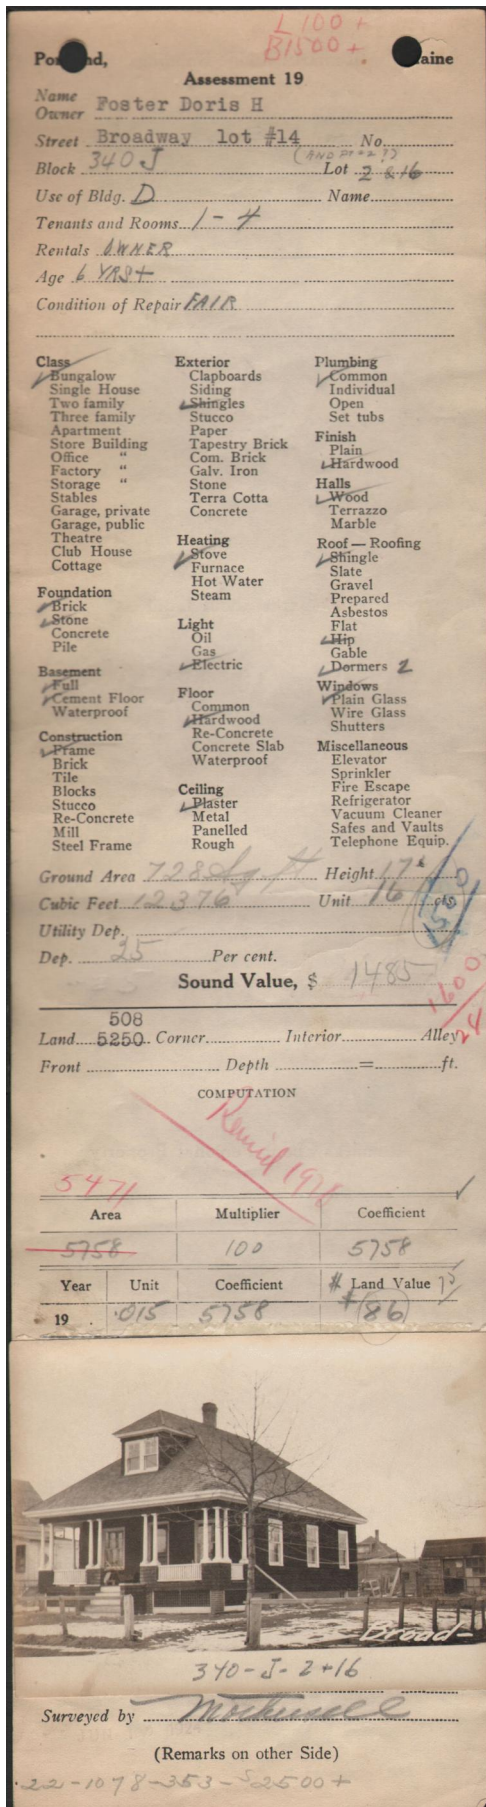 L 100 +
B 1500 +
Po nd, aine
Assessment 19
Name
Owner Foster Doris H
Street Broadway lot #14 No.
(AND PT #2?)
Block 340 J Lot 2 & 16
Use of Bldg. D Name
Tenants and Rooms 1 - 4
Rentals OWNER
Age 6 YRS +
Condition of Repair FAIR
Class
Bungalow
Single House
Two family
Three family
Apartment
Store Building
Office "
Factory "
Storage "
Stables
Garage, private
Garage, public
Theatre
Club House
Cottage
Foundation
Brick
Stone
Concrete
Pile
Basement
Full
Cement Floor
Waterproof
Construction
Frame
Brick
Tile
Blocks
Stucco
Re-Concrete
Mill
Steel Frame
Exterior
Clapboards
Siding
Shingles
Stucco
Paper
Tapestry Brick
Com. Brick
Galv. Iron
Stone
Terra Cotta
Concrete
Heating
Stove
Furnace
Hot Water
Steam
Light
Oil
Gas
Electric
Floor
Common
Hardwood
Re-Concrete
Concrete Slab
Waterproof
Ceiling
Plaster
Metal
Panelled
Rough
Plumbing
Common
Individual
Open
Set tubs
Finish
Plain
Hardwood
Halls
Wood
Terrazzo
Marble
Roof — Roofing
Shingle
Slate
Gravel
Prepared
Asbestos
Flat
Hip
Gable
Dormers 2
Windows
Plain Glass
Wire Glass
Shutters
Miscellaneous
Elevator
Sprinkler
Fire Escape
Refrigerator
Vacuum Cleaner
Safes and Vaults
Telephone Equip.
Ground Area 728 Sq ft Height 17
Cubic Feet 12376 Unit 16 cts
Utility Dep.
Dep. 25 Per cent.
Sound Value, $ 1485
1600
24
508
Land 5250 Corner Interior Alley
Front Depth = ft.
COMPUTATION
5471
Area Multiplier Coefficient
5758 100 5758
Year Unit Coefficient $ Land Value 75
19 .015 5758 $ 86
Broad-
340-J-2+16
Surveyed by
(Remarks on other Side)
22-1078-353-$2500+